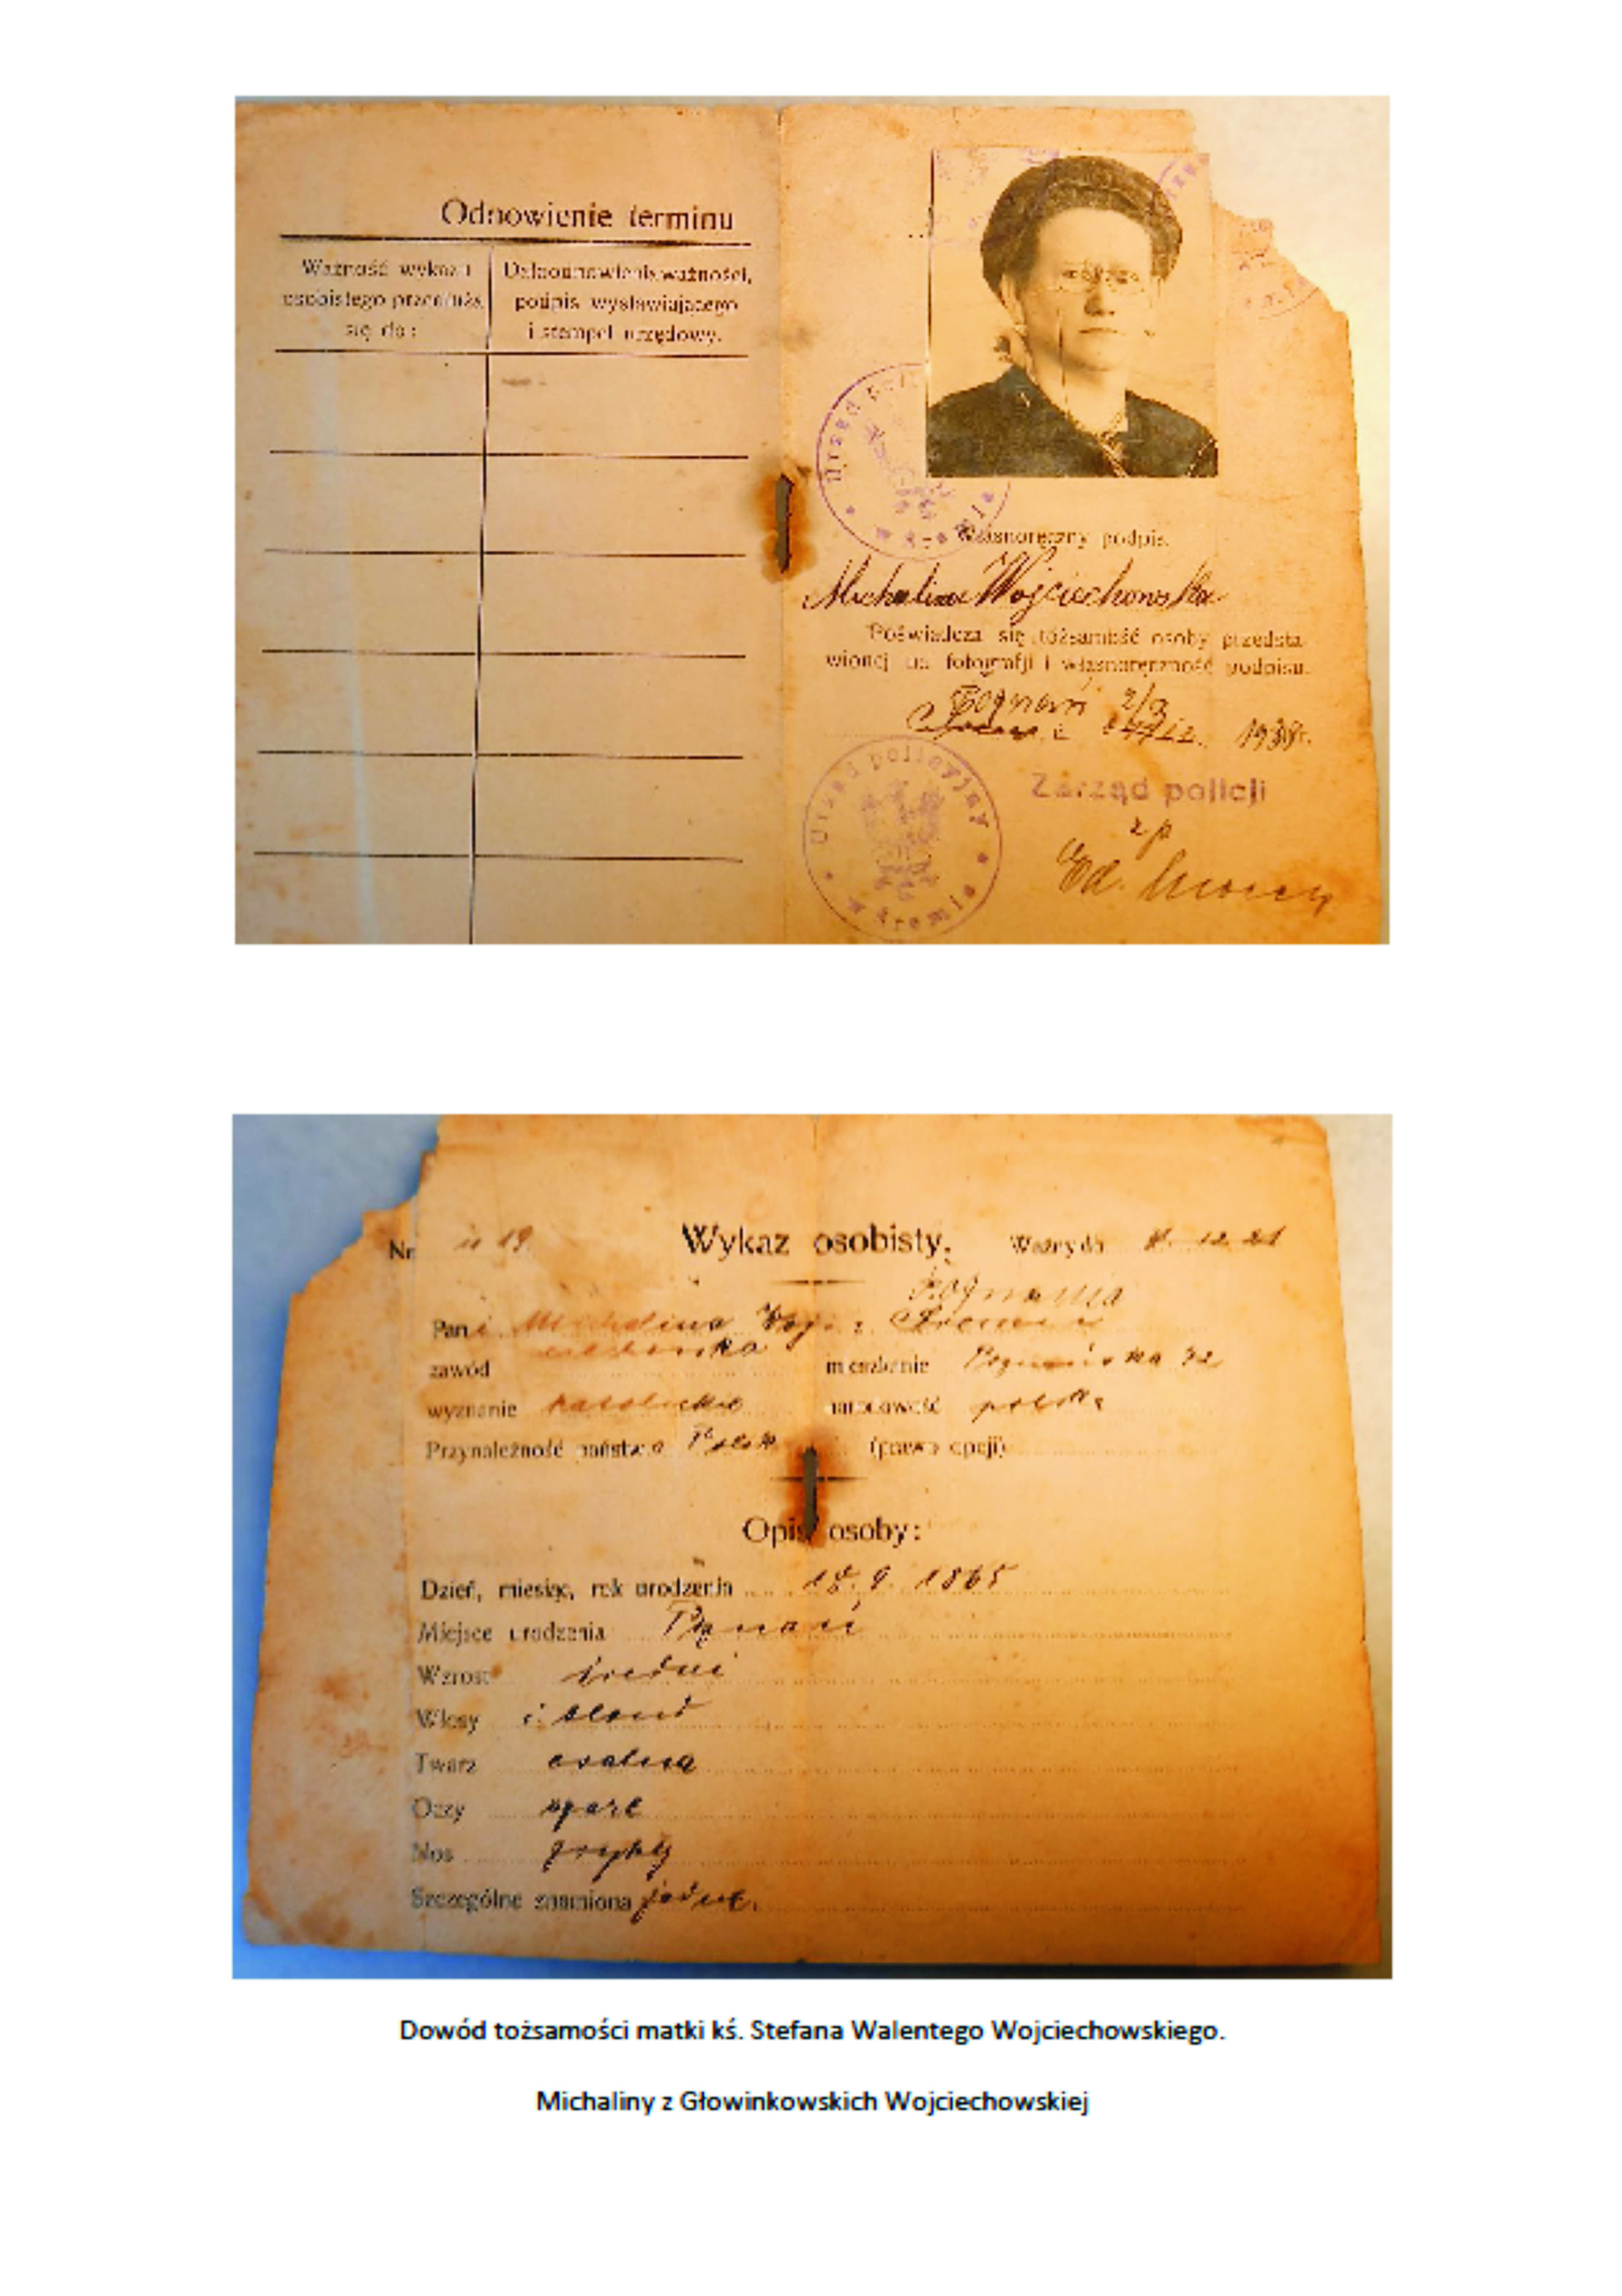 Odnowienie terminu
Ważność wykazu
osobistego przedłuża
się do:
Data odnowienia ważności,
podpis wystawiającego
i stempel urzędowy.
Urząd
Własnoręczny podpis.
Michalina Wojciechowska
Poświadcza się tożsamość osoby przedsta
wionej na fotografji i własnoręczność podpisu.
Poznań 2/3
193
Zarząd policji
zp
Ed.
Urząd policyjny
w Śremie
Nr 19. Wykaz osobisty. Ważny do 12 21
Poznania
Pani Michalina Woj z Śremu
ciechowska
zawód mieszkanie Poznańska 32
wyznanie katolickie narodowość polska
Przynależność państwo. Polsk (prawo opcji)
Opis osoby:
Dzień, miesiąc, rok urodzenia 18. 9. 1865
Miejsce urodzenia Poznań
Wzrost średni
Włosy c. blond
Twarz owalna
Oczy szare
Nos zwykły
Szczególne znamiona żadne.
Dowód tożsamości matki kś. Stefana Walentego Wojciechowskiego.
Michaliny z Głowinkowskich Wojciechowskiej